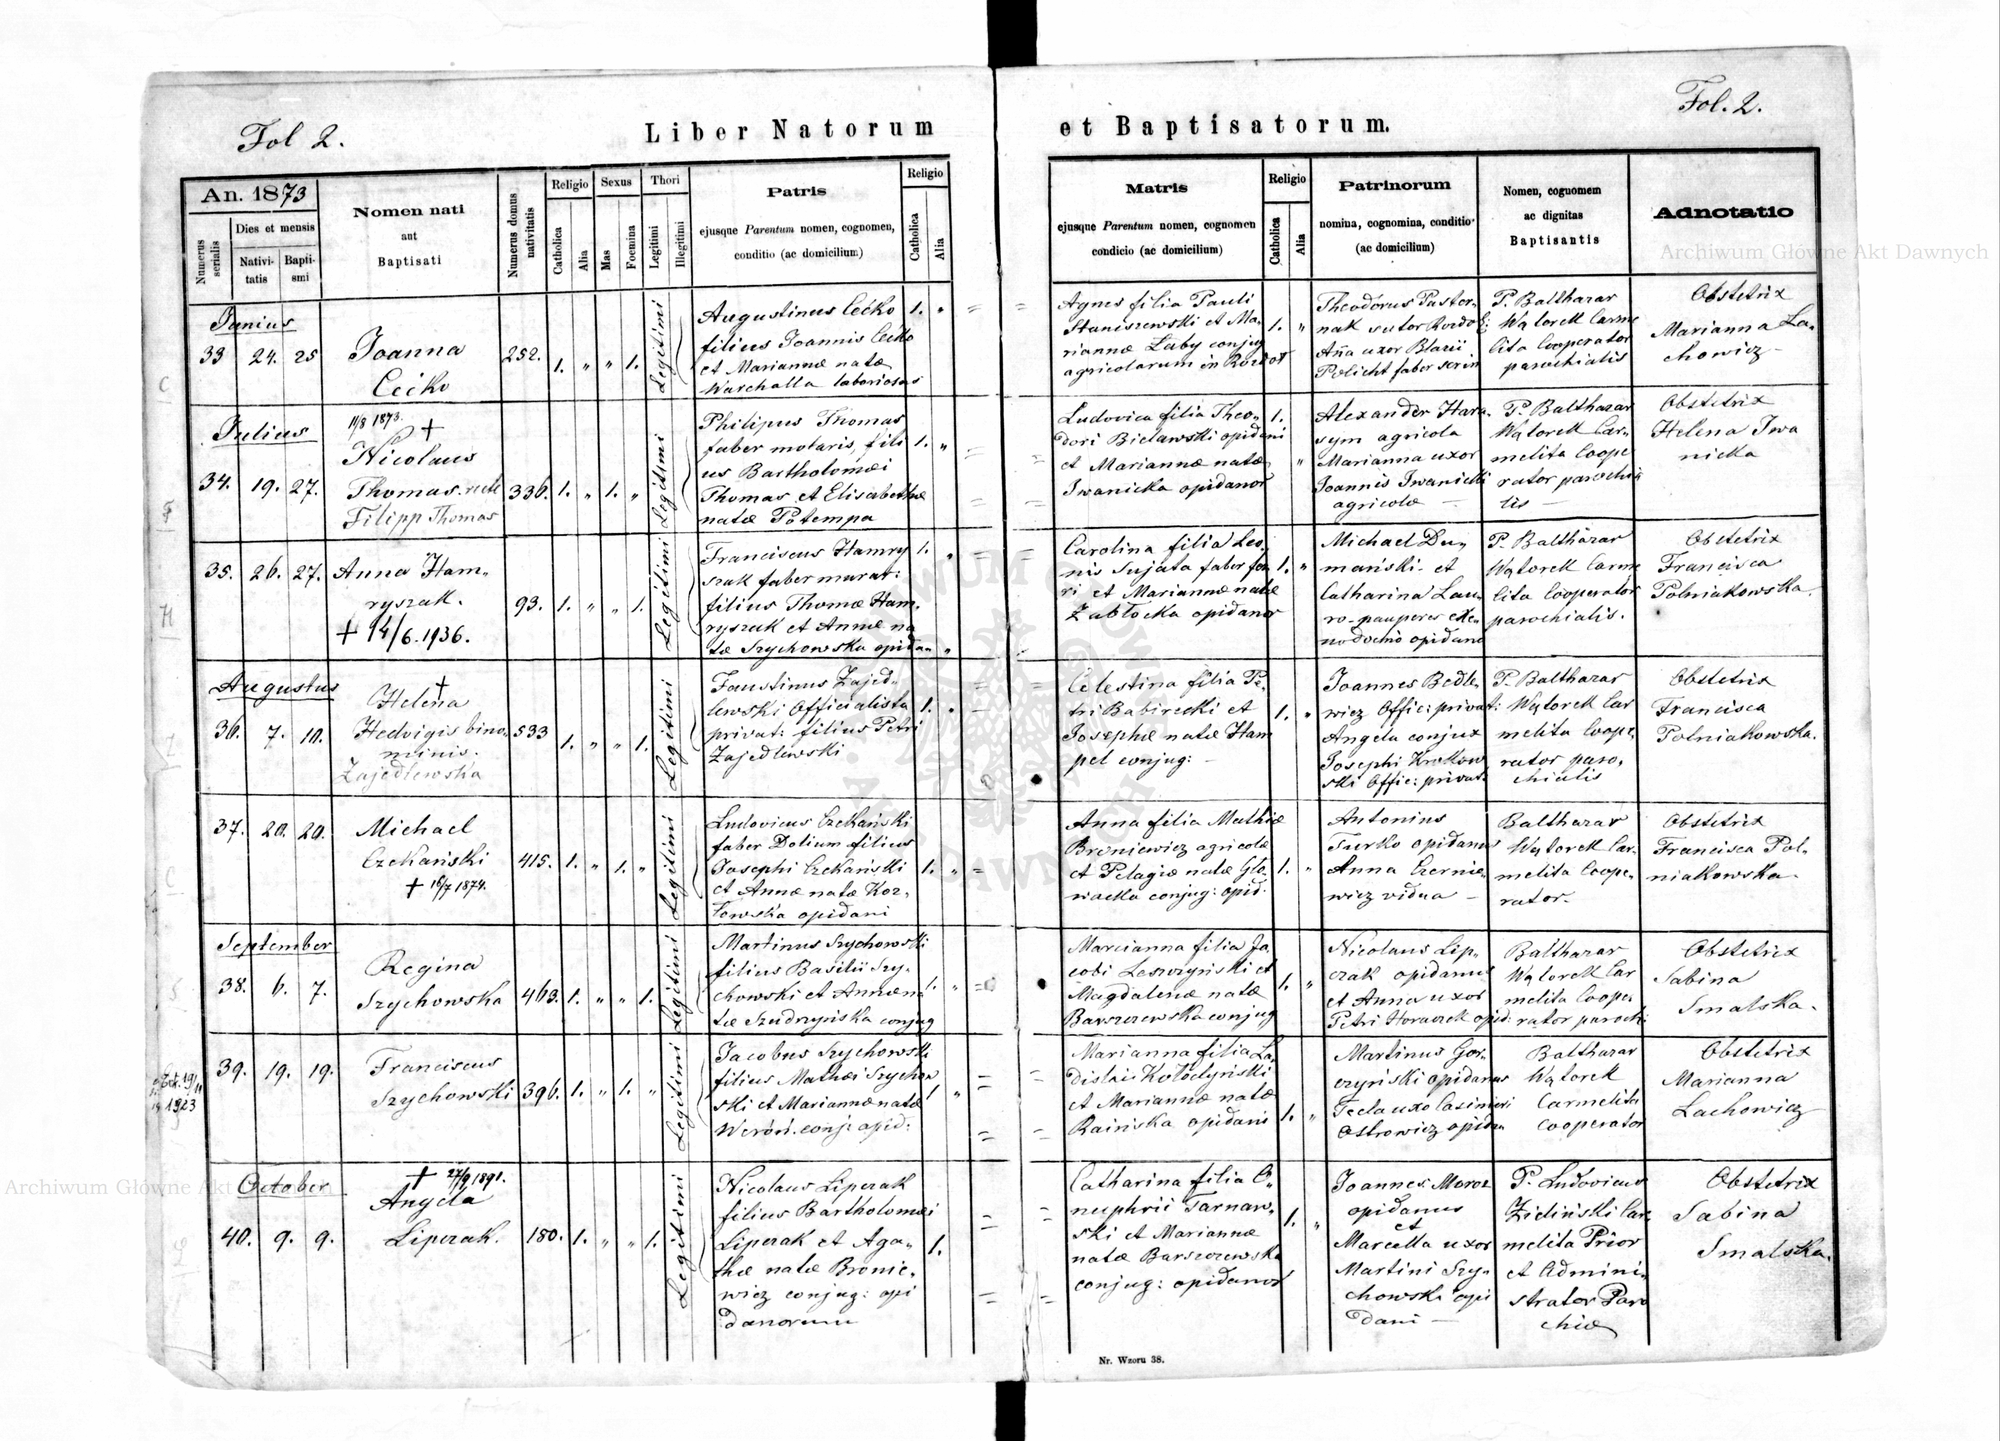 Fol 2.
Liber Natorum
et Baptisatorum.
Fol. 2.
An. 1873
Numerus serialis
Dies et mensis
Nativitatis
Baptismi
Nomen nati
aut
Baptisati
Numerus domus nativitatis
Religio
Catholica
Alia
Sexus
Mas
Foemina
Thori
Legitimi
Illegitimi
Patris
ejusque Parentum nomen, cognomen,
conditio (ac domicilium)
Religio
Catholica
Alia
Matris
ejusque Parentum nomen, cognomen
condicio (ac domicilium)
Religio
Catholica
Alia
Patrinorum
nomina, cognomina, conditio
(ac domicilium)
Nomen, cognomen
ac dignitas
Baptisantis
Adnotatio
Archiwum Główne Akt Dawnych
Junius
33 24. 25
Joanna
Cećko
252. 1. „ „ 1.
Legitimi
Augustinus Cećko
filius Joannis Cećko
et Mariannæ natæ
Warchalla laboriosus
1. „
Agnes filia Pauli
Staniszewski et Ma-
riannæ Luby conjug
agricolarum in
1. „
Theodorus Paster-
nak sutor
Ańa uxor Blasii
Policht faber
P. Balthazar
Wątorek Carme
lita Cooperator
parochialis
Obstetrix
Marianna La-
chowicz
Julius
34. 19. 27.
11/8 1873. †
Nicolaus
Thomas. recte
Filipp Thomas
336. 1. „ 1. „
Legitimi
Philipus Thomas
faber molaris, fili
us Bartholomæi
Thomas et Elisabethæ
natæ Potempa
1. „
Ludovica filia Theo-
dori Bielawski opidani
et Mariannæ natæ
Iwanicka opidanor
1. „
Alexander Hara-
sym agricola
Marianna uxor
Joannis Iwanicki
agricolæ
P. Balthazar
Wątorek Car-
melita Coope
rator parochia
lis
Obstetrix
Helena Iwa
nicka
35. 26. 27.
Anna Ham-
ryszak.
† 14/6. 1936.
93. 1. „ „ 1.
Legitimi
Franciscus Hamry
szak faber murar:
filius Thomæ Ham-
ryszak et Annæ na
tæ Szychowska opidan-
1. „
Carolina filia Leo-
nis Sujata faber fer
ri et Mariannæ natæ
Zabłocka opidanor
1. „
Michael Du-
mański et
Catharina Lau-
ro pauperes exe-
nodochio opidani
P. Balthazar
Wątorek Carme
lita Cooperator
parochialis.
Obstetrix
Francisca
Polniakowska.
Augustus
36. 7. 10.
†
Helena
Hedvigis bino-
minis.
Zajedlewska
533 1. „ „ 1.
Legitimi
Faustinus Zajed-
lewski Officialista
privat: filius Petri
Zajedlewski
1. „
Celestina filia Pe-
tri Babirecki et
Josephæ natæ Ham
pel conjug:
1. „
Joannes Bedle-
wicz Offic: privat:
Angela conjux
Josephi Krokow
ski Offic: privat:
P. Balthazar
Wątorek Car
melita Coope-
rator paro-
chialis
Obstetrix
Francisca
Polniakowska.
37. 20. 20.
Michael
Czekański
† 16/7 1874.
415. 1. „ 1. „
Legitimi
Ludovicus Czekański
faber Dolium filius
Josephi Czekański
et Annæ natæ Koz-
łowska opidani
1. „
Anna filia Mathiæ
Broniewicz agricolæ
et Pelagiæ natæ Glo-
wacka conjug: opid.
1. „
Antonius
Turko opidanus
Anna Czernie-
wicz vidua
Balthazar
Wątorek Car-
melita Coope-
rator.
Obstetrix
Francisca Pol-
niakowska.
September
38. 6. 7.
Regina
Szychowska
463. 1. „ „ 1.
Legitimi
Martinus Szychowski
filius Basilii Szy-
chowski et Annæ na
tæ Szudrzyńska conjug
1. „
Marcianna filia Ja
cobi Leszczyński et
Magdalenæ natæ
Barszczewska conjug
1. „
Nicolaus Lip-
czak opidanus
et Anna uxor
Petri Horaczek opid:
Balthazar
Wątorek Car
melita Coope-
rator paroch:
Obstetrix
Sabina
Smalska.
39. 19. 19.
1923
Franciscus
Szychowski
396. 1. „ 1. „
Legitimi
Jacobus Szychowski
filius Mathæi Szychow
ski et Mariannæ natæ
Weroń. conj: opid:
1 „
Marianna filia La-
dislai Kołodyński
et Mariannæ natæ
Raińska opidani
1. „
Martinus Gor-
czyński opidanus
Tecla uxo Casimiri
Ostrowicz opidan
Balthazar
Wątorek
Carmelita
Cooperator
Obstetrix
Marianna
Lachowicz
October
40. 9. 9.
† 27/9 1891.
Angela
Lipczak.
180. 1. „ „ 1.
Legitimi
Nicolaus Lipczak
filius Bartholomæi
Lipczak et Aga-
thæ natæ Bronie-
wicz conjug: opi
danorum
1.
Catharina filia O-
nuphrii Tarnaw-
ski et Mariannæ
natæ Barszczewska
conjug: opidanor
1. „
Joannes Moroz
opidanus
et
Marcella uxor
Martini Szy-
chowski opi
dani
P. Ludovicus
Zieliński Car
melita Prior
et Admini-
strator Paro
chiæ
Obstetrix
Sabina
Smalska.
Archiwum Główne Akt Dawnych
Nr. Wzoru 38.